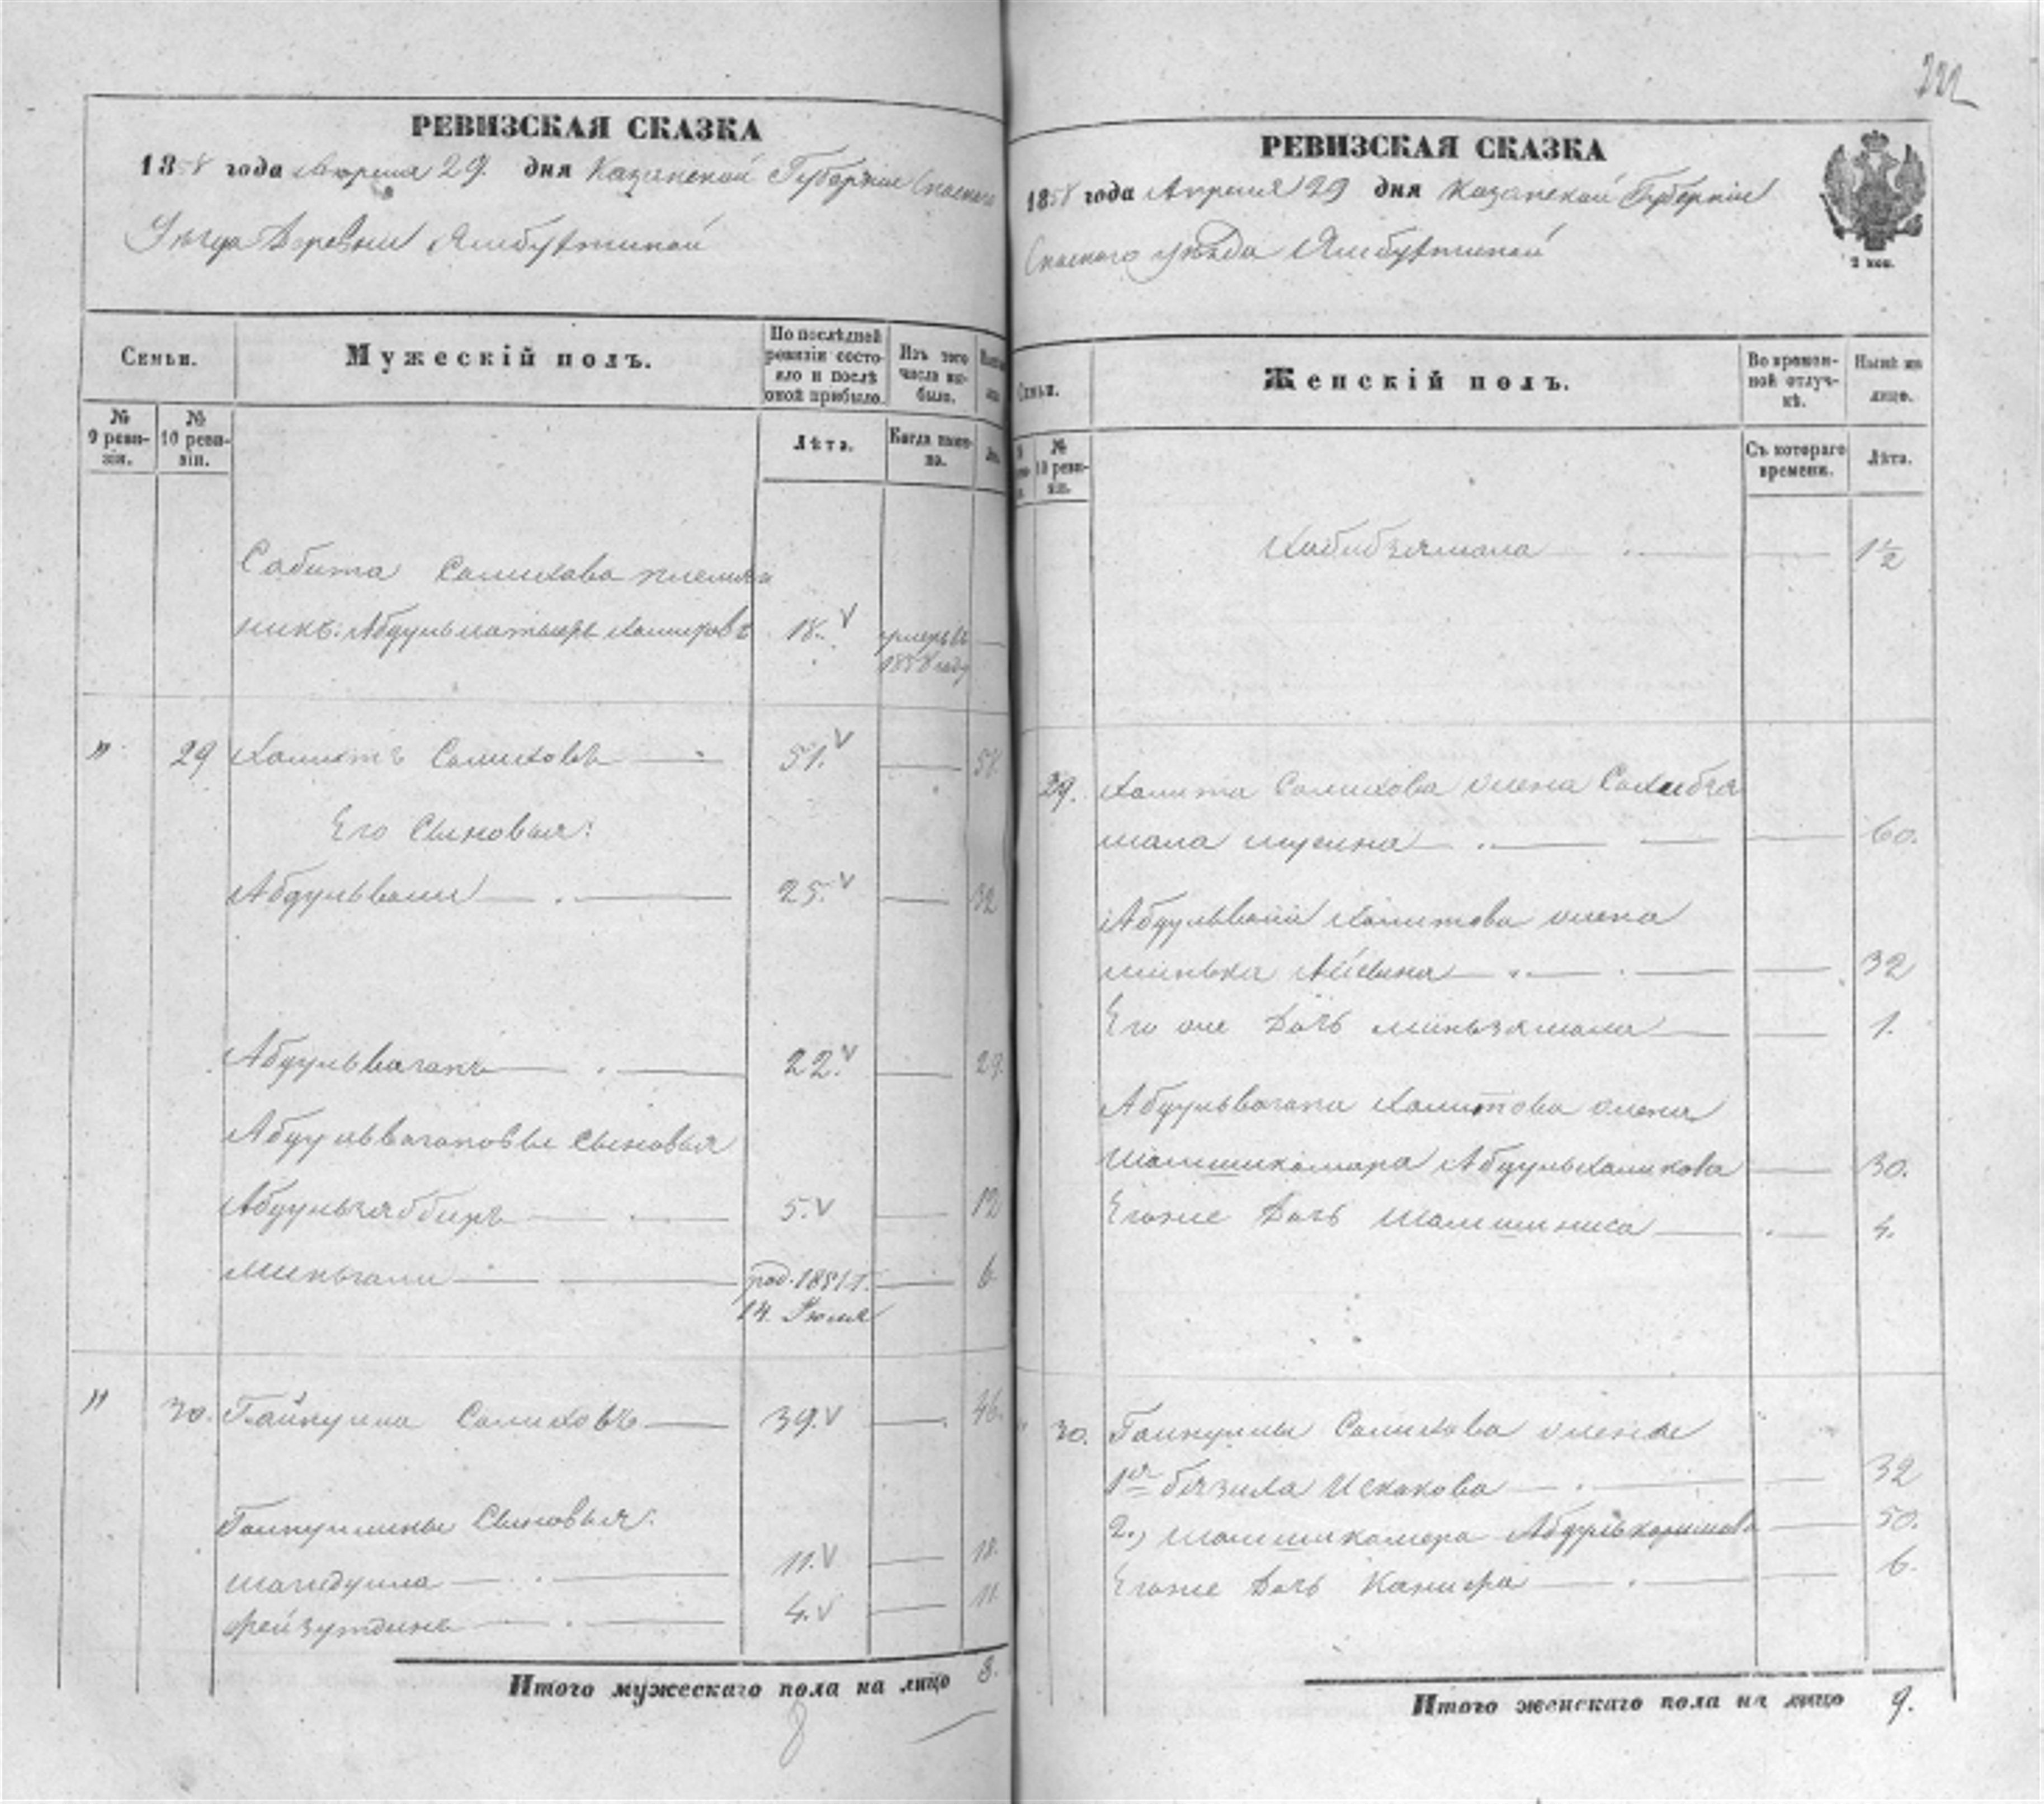 222
РЕВИЗСКАЯ СКАЗКА
1858 года Апреля 29. дня Казанской Губернiи Спаского
Уезда Деревни Ямбухтиной
Семьи.
Мужескiй полъ.
По послѣдней ревизiи состояло и послѣ оной прибыло.
Изъ того числа выбыло.
№ 9 ревизiи.
№ 10 ревизiи.
Лѣта.
Когда именно.
Сабита Салихова племян
никъ: Абдульлатыфъ Халитовъ 18. умеръ въ
1858 году
" 29 Халитъ Салиховъ 51. 58.
Его Сыновья:
Абдульвали 25. 32
Абдульвагапъ 22. 29.
Абдульвагаповы сыновья
Абдульзяббиръ 5. 12
Миньгали род. 1851 г. 6
14. Июля
" 30. Гайнулла Салиховъ 39. 46.
Гайнуллины Сыновья:
Шагидулла 11. 18.
Фейзутдинъ 4. 11.
Итого мужескаго пола на лицо 8.
8
РЕВИЗСКАЯ СКАЗКА
1858 года Апреля 29 дня Казанской Губернiи
Спаского уѣзда Ямбухтиной
2 коп.
Семьи.
Женскiй полъ.
Во временной отлучкѣ.
Нынѣ на лицо.
№ 10 ревизiи.
Съ котораго времени.
Лѣта.
Хабибзямала 1 1/2
29. Халита Салихова жена Сахибзя
мала 60.
Абдульвали Халитова жена
32
Его же дочь Миньзямала 1.
Абдульвагапа Халитова жена
Шамшикамара Абдульхаликова 30.
Егоже дочь Шамшиниса 4.
30. Гайнуллы Салихова жены
1я Бязила Искакова 32
2., Шамшикамера Абдулькаримова 50.
Егоже дочь Канифа 6.
Итого женскаго пола на лицо 9.